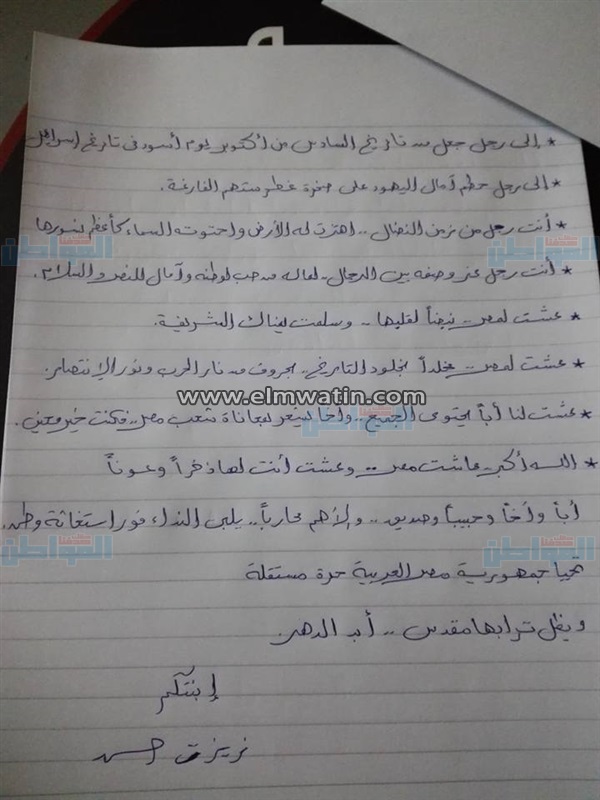 * إلى رجل جعل من تاريخ السادس من أكتوبر يوم أسود فى تاريخ إسرائيل
* إلى رجل حطم آمال اليهود على صخرة غطرستهم الفارغة.
* أنت رجل من زمن النضال .. اهتزت له الأرض واحتوته السماء كأعظم نسورها
* أنت رجل عز وصفه بين الرجال .. لما له من حب لوطنه وآمال للنصر والسلام.
* عشت لمصر .. نبضاً لقلبها .. وسلمت يمناك الشريفة.
* عشت لمصر .. مخلداً بخلود التاريخ .. بحروف من نار الحرب ونور الإنتصار.
www.elmwatin.com
* عشت لنا أباً يحتوى الجميع .. وأخا يشعر بمعاناة شعب مصر .. فكنت خير معين.
* الله أكبر .. عاشت مصر .. وعشت أنت لها ذخراً وعوناً
أباً وأخاً وحبيباً وصديق .. والأهم محارباً .. يلبى النداء فور استغاثة وطن.
تحيا جمهورية مصر العربية حرة مستقلة
ويظل ترابها مقدس .. أبد الدهر.
إبنتكم
حسن
المواطن